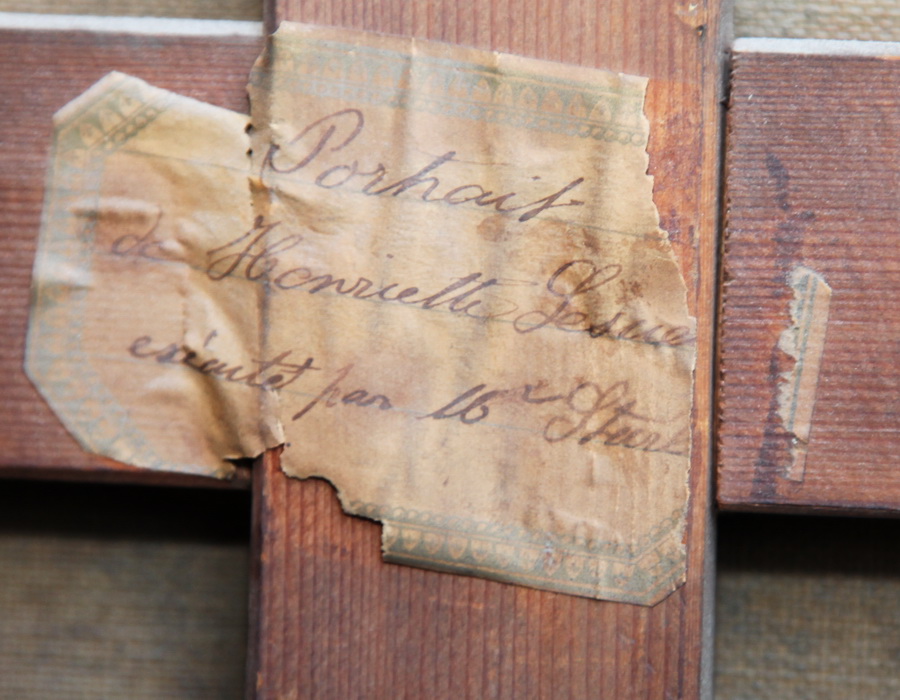 Portrait
de Henriette Lesueu
exécuté par Mr Stark